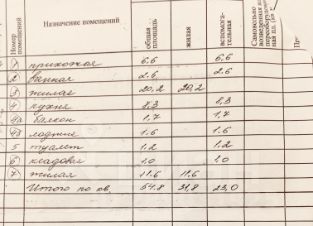 Номер помещения | Назначение помещений | общая площадь | жилая | вспомога-тельная | Самовольно
1 прихожая 6.6 6.6
2 ванная 2.6 2.6
3 жилая 20,2 20,2
4 кухня 8,3 8,3
4а балкон 1,7 1,7
4б лоджия 1.6 1.6
5 туалет 1.2 1.2
6 кладовая 1,0 1.0
7 жилая 11.6 11.6
Итого по кв. 54.8 31,8 23,0